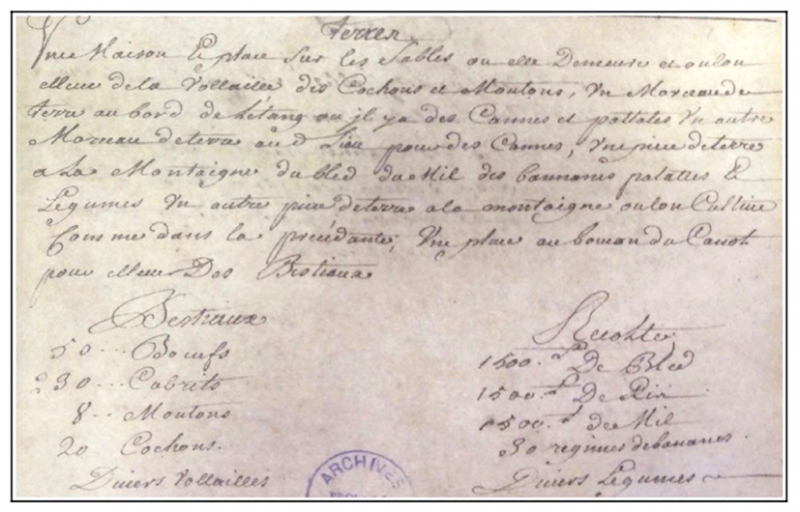 Terres
Une Maison Et place Sur les Sables ou elle Demeure et ou lon
elleve de la Vollaille des Cochons et Moutons, Un Morceau de
terre au bord de Létang ou jl ya des Cannes et pattates Un autre
Morceau de terre au d. Lieu pour des Cannes, Une piece de terre
a La Montaigne du bled du Mil des bannanes patattes Et
Légumes Un autre piece de terre a la montaigne ou lon Cultive
Comme dans la précédante, Une place au du
pour ellever Des Bestiaux
Bestiaux
50 ... Boeufs
230 ... Cabrits
8 .. Moutons
20 Cochons.
Divers Vollailles
Recolte
1500. De Bled
1500. De Ris
1500. de Mil
30 regimes de bananes.
Divers Légumes
ARCHIVES